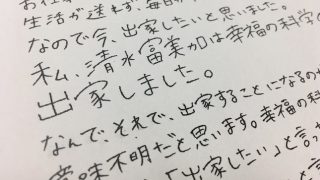 生活が送れず、毎日
なので今、出家したいと思いました。
私、清水富美加は幸福の科学の
出家しました。
なんで、それで、出家することになるのか
意味不明だと思います。幸福の科
「出家したい」と言っ